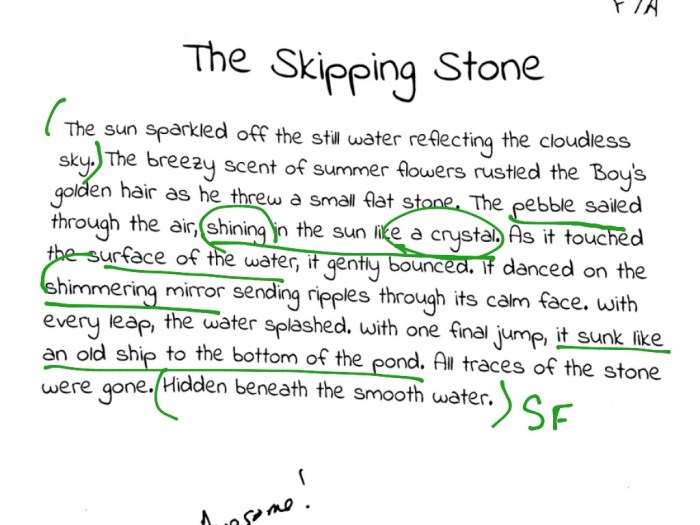 F/A
The Skipping Stone
The sun sparkled off the still water reflecting the cloudless
sky. The breezy scent of summer flowers rustled the Boy's
golden hair as he threw a small flat stone. The pebble sailed
through the air, shining in the sun like a crystal. As it touched
the surface of the water, it gently bounced. it danced on the
shimmering mirror sending ripples through its calm face. with
every leap, the water splashed. with one final jump, it sunk like
an old ship to the bottom of the pond. All traces of the stone
were gone. Hidden beneath the smooth water. SF
Awesome!